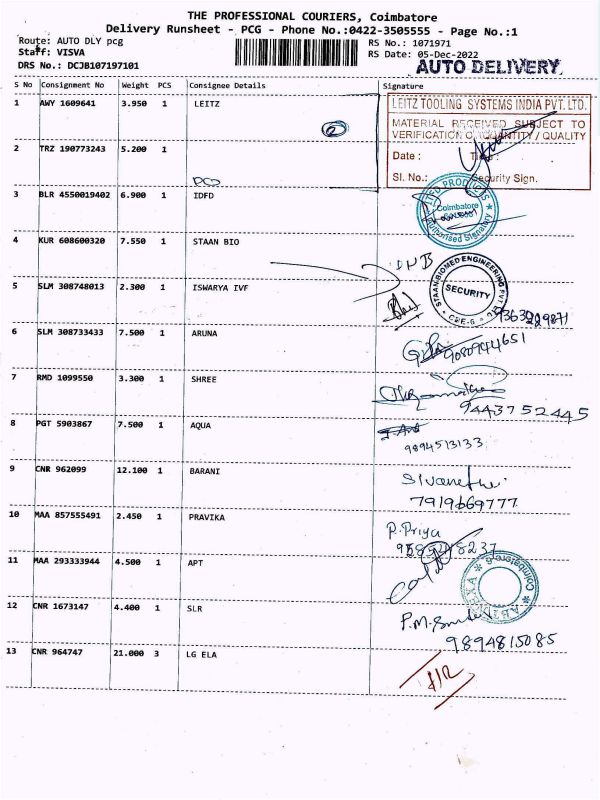 THE PROFESSIONAL COURIERS, Coimbatore
Delivery Runsheet - PCG - Phone No.:0422-3505555 - Page No.:1
Route: AUTO DLY pcg
RS No.: 1071971
Staff: VISVA
RS Date: 05-Dec-2022
DRS No.: DCJB107197101
AUTO DELIVERY
S No Consignment No Weight PCS Consignee Details Signature
1 AWY 1609641 3.950 1 LEITZ
LEITZ TOOLING SYSTEMS INDIA PVT. LTD.
MATERIAL RECEIVED SUBJECT TO
VERIFICATION OF QUANTITY / QUALITY
2
2 TRZ 190773243 5.200 1
Date : Time :
Sl. No.: Security Sign.
3 BLR 4550019402 6.900 1 IDFD
Coimbatore
Authorised Signatory
4 KUR 608600320 7.550 1 STAAN BIO
STAAN BIOMED ENGINEERING PVT
SECURITY
CBE-6
5 SLM 308748013 2.300 1 ISWARYA IVF
6 SLM 308733433 7.500 1 ARUNA
9080944651
7 RMD 1099550 3.300 1 SHREE
9443752445
8 PGT 5903867 7.500 1 AQUA
9894513133
9 CNR 962099 12.100 1 BARANI
7919669777
10 MAA 857555491 2.450 1 PRAVIKA
P. Priya
11 MAA 293333944 4.500 1 APT
12 CNR 1673147 4.400 1 SLR
9894815085
13 CNR 964747 21.000 3 LG ELA